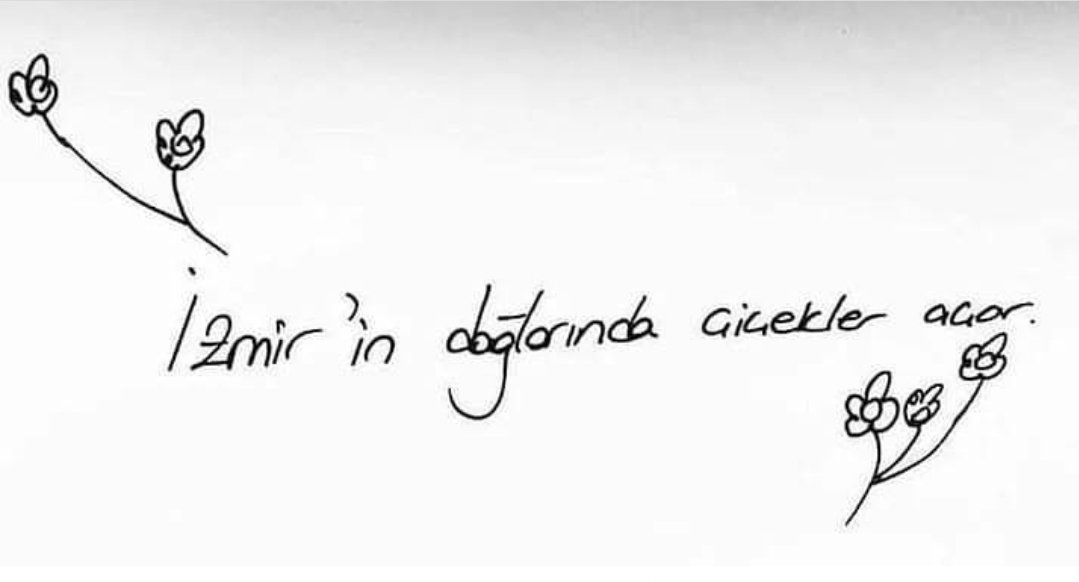 İzmir'in dağlarında çiçekler açar.